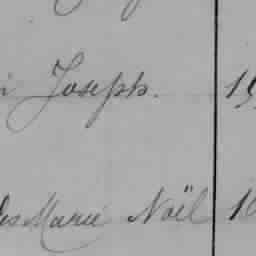 Joseph. 19
Marie Noël 1